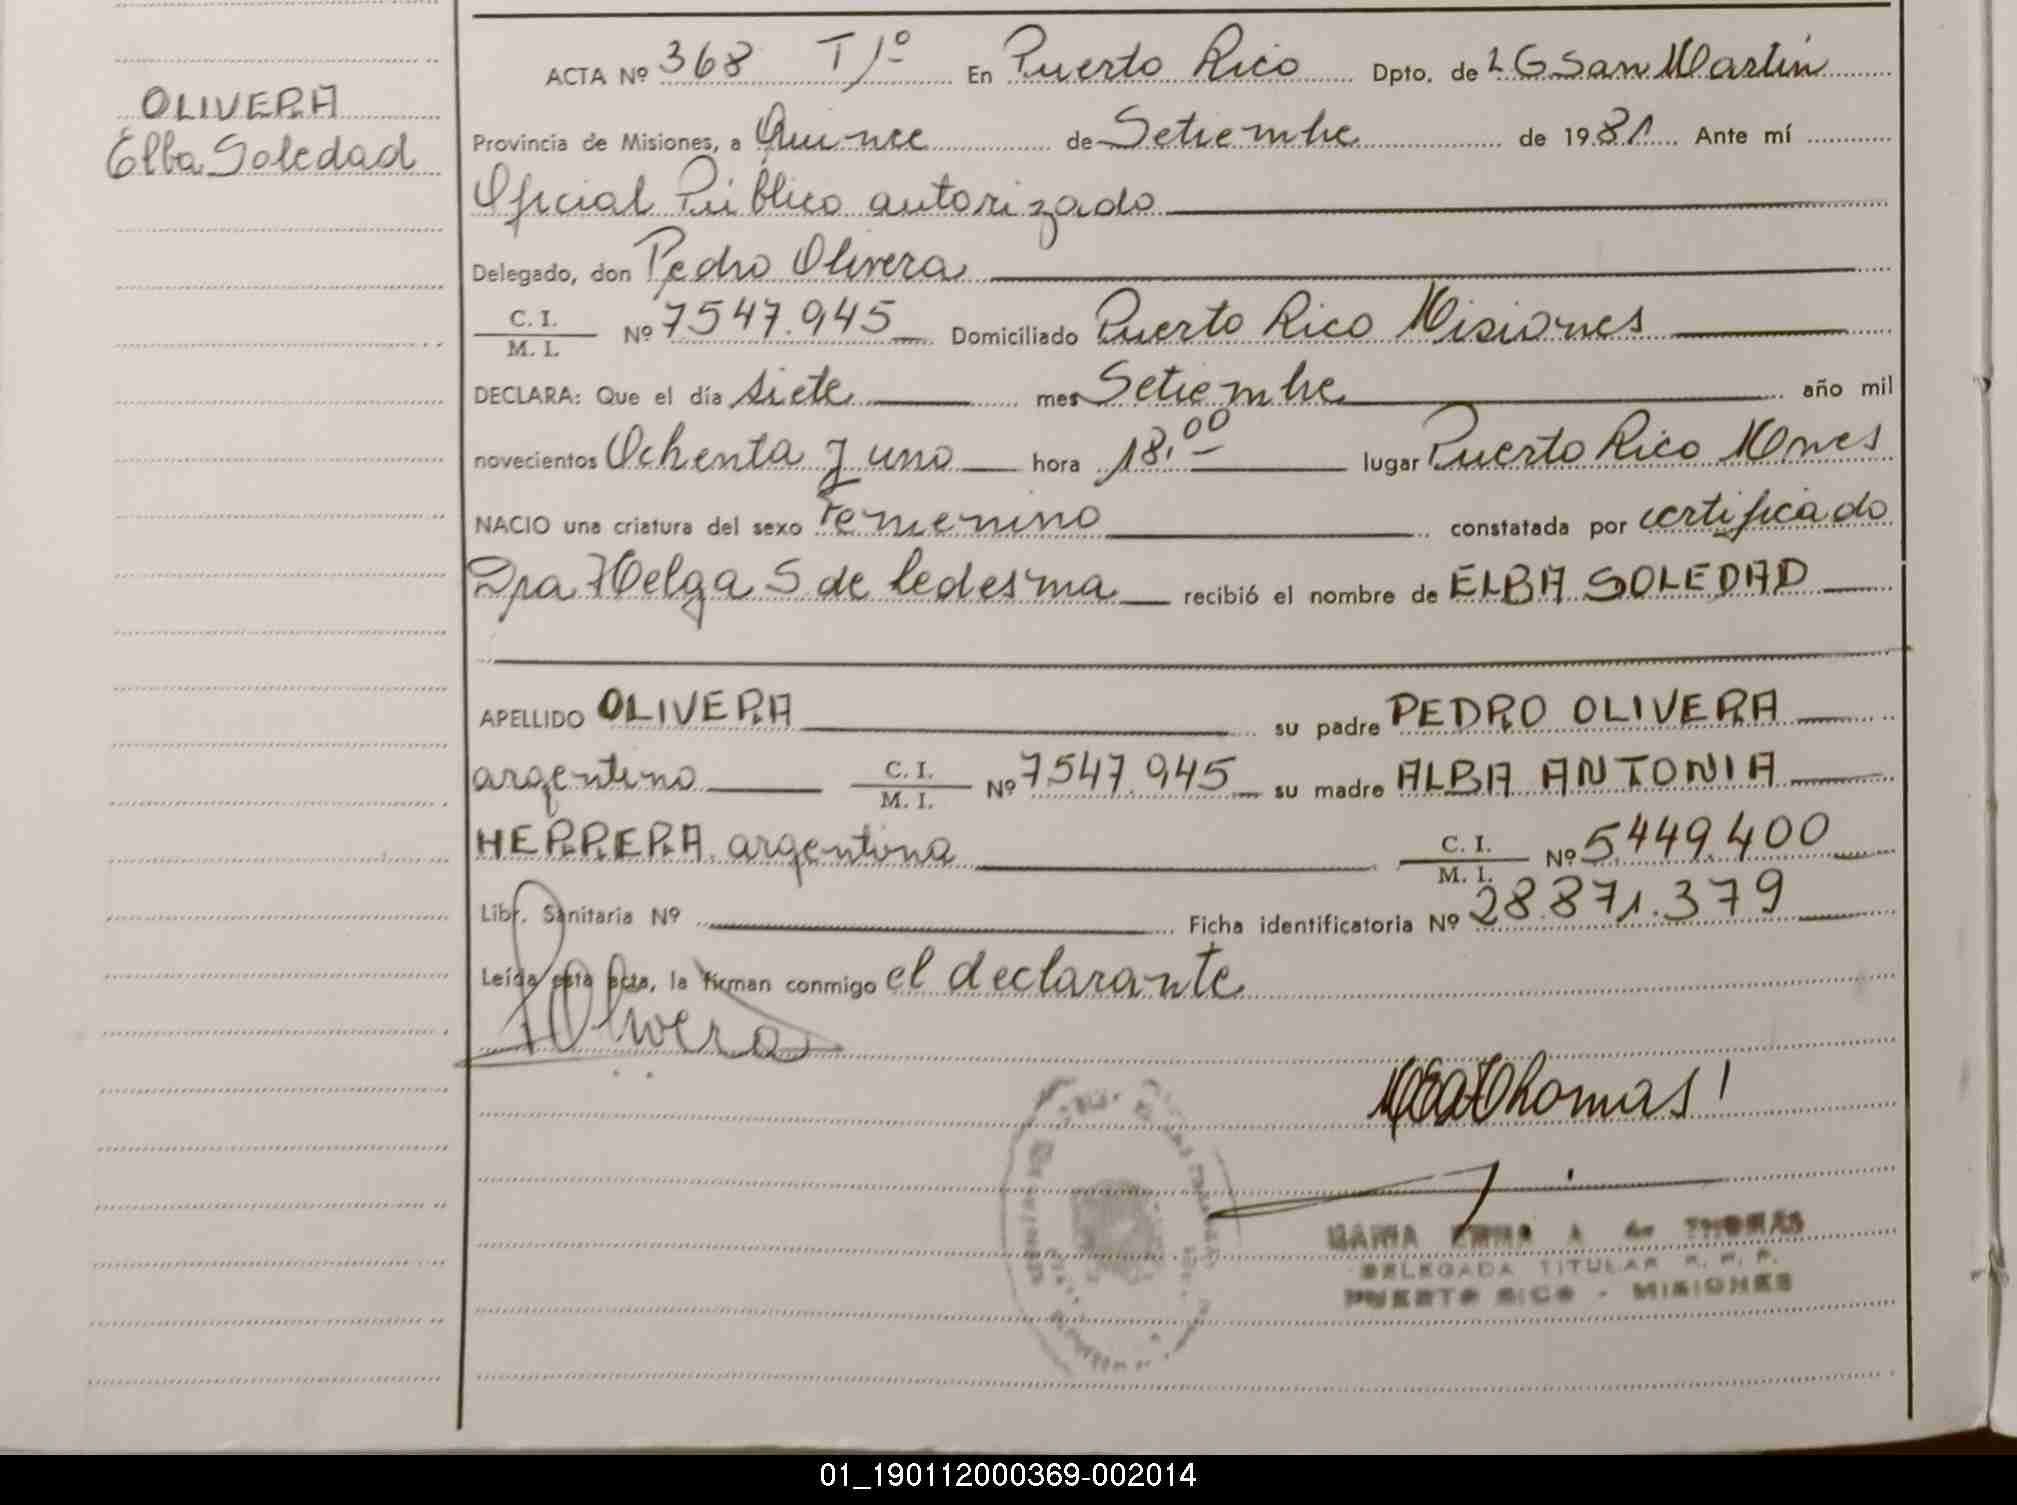 OLIVERA
Elba Soledad
ACTA Nº 368 T 1º En Puerto Rico Dpto. de L G San Martín
Provincia de Misiones, a Quince de Setiembre de 1981 Ante mí
Oficial Público autorizado
Delegado, don Pedro Olivera
C. I.
M. I. Nº 7547.945 Domiciliado Puerto Rico Misiones
DECLARA: Que el día siete mes Setiembre año mil
novecientos Ochenta y uno hora 18,00 lugar Puerto Rico Mnes
NACIO una criatura del sexo Femenino constatada por certificado
Dra Helga S de Ledesma recibió el nombre de ELBA SOLEDAD
APELLIDO OLIVERA su padre PEDRO OLIVERA
argentino C. I. M. I. Nº 7547.945 su madre ALBA ANTONIA
HERRERA argentina C. I. M. I. Nº 5449.400
Libr. Sanitaria Nº Ficha identificatoria Nº 28.871.379
Leída esta acta, la firman conmigo el declarante
POlivera
Thomas
MARIA ERNA A de THOMAS
DELEGADA TITULAR R. P. P.
PUERTO RICO - MISIONES
01_190112000369-002014